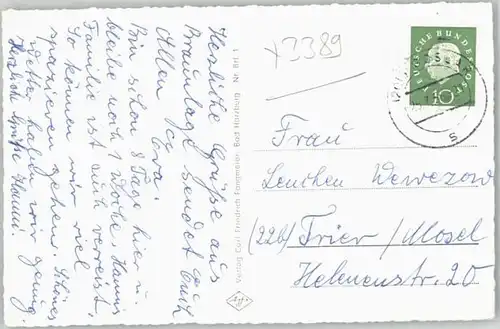 Herzliche Grüße aus
Braunlage sendet Euch
Allen Eva.
Bin schon 8 Tage hier u.
bleibe noch 1 Woche. Hannis
Familie ist auch verreist.
So können wir viel
spazieren gehen. Schönes
Wetter haben wir genug
Herzlich grüßt Hanni
Verlag Carl Friedrich Fangmeier, Bad Harzburg Nr. Brl. 1
x3389
DEUTSCHE BUNDESPOST
10
Frau
Lenchen Wewezow
(22b) Trier/Mosel
Helenenstr. 20